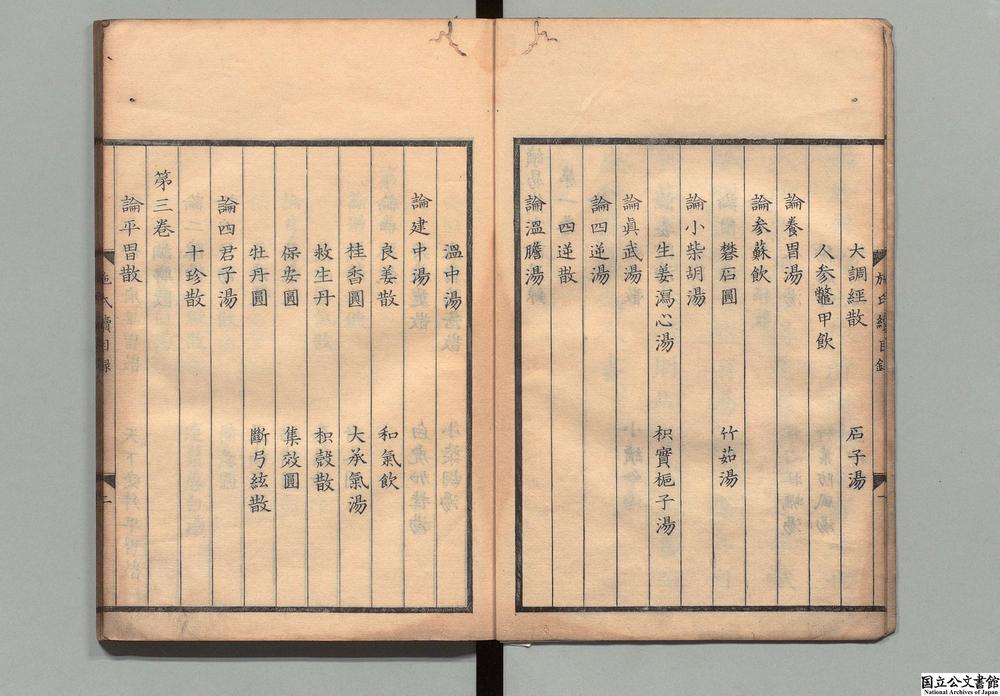 大調經散　石子湯
人参鼈甲飲
論養胃湯
論参蘇飲
礬石圓　竹茹湯
論小柴胡湯
生姜瀉心湯　枳實梔子湯
論眞武湯
論四逆湯
四逆散
論溫膽湯
溫中湯
論建中湯
良姜散　和氣飲
桂香圓　大承氣湯
救生丹　枳殼散
保安圓　集效圓
牡丹圓　斷弓絃散
論四君子湯
十珍散
第三卷
論平胃散
施氏續目錄　二
国立公文書館
National Archives of Japan